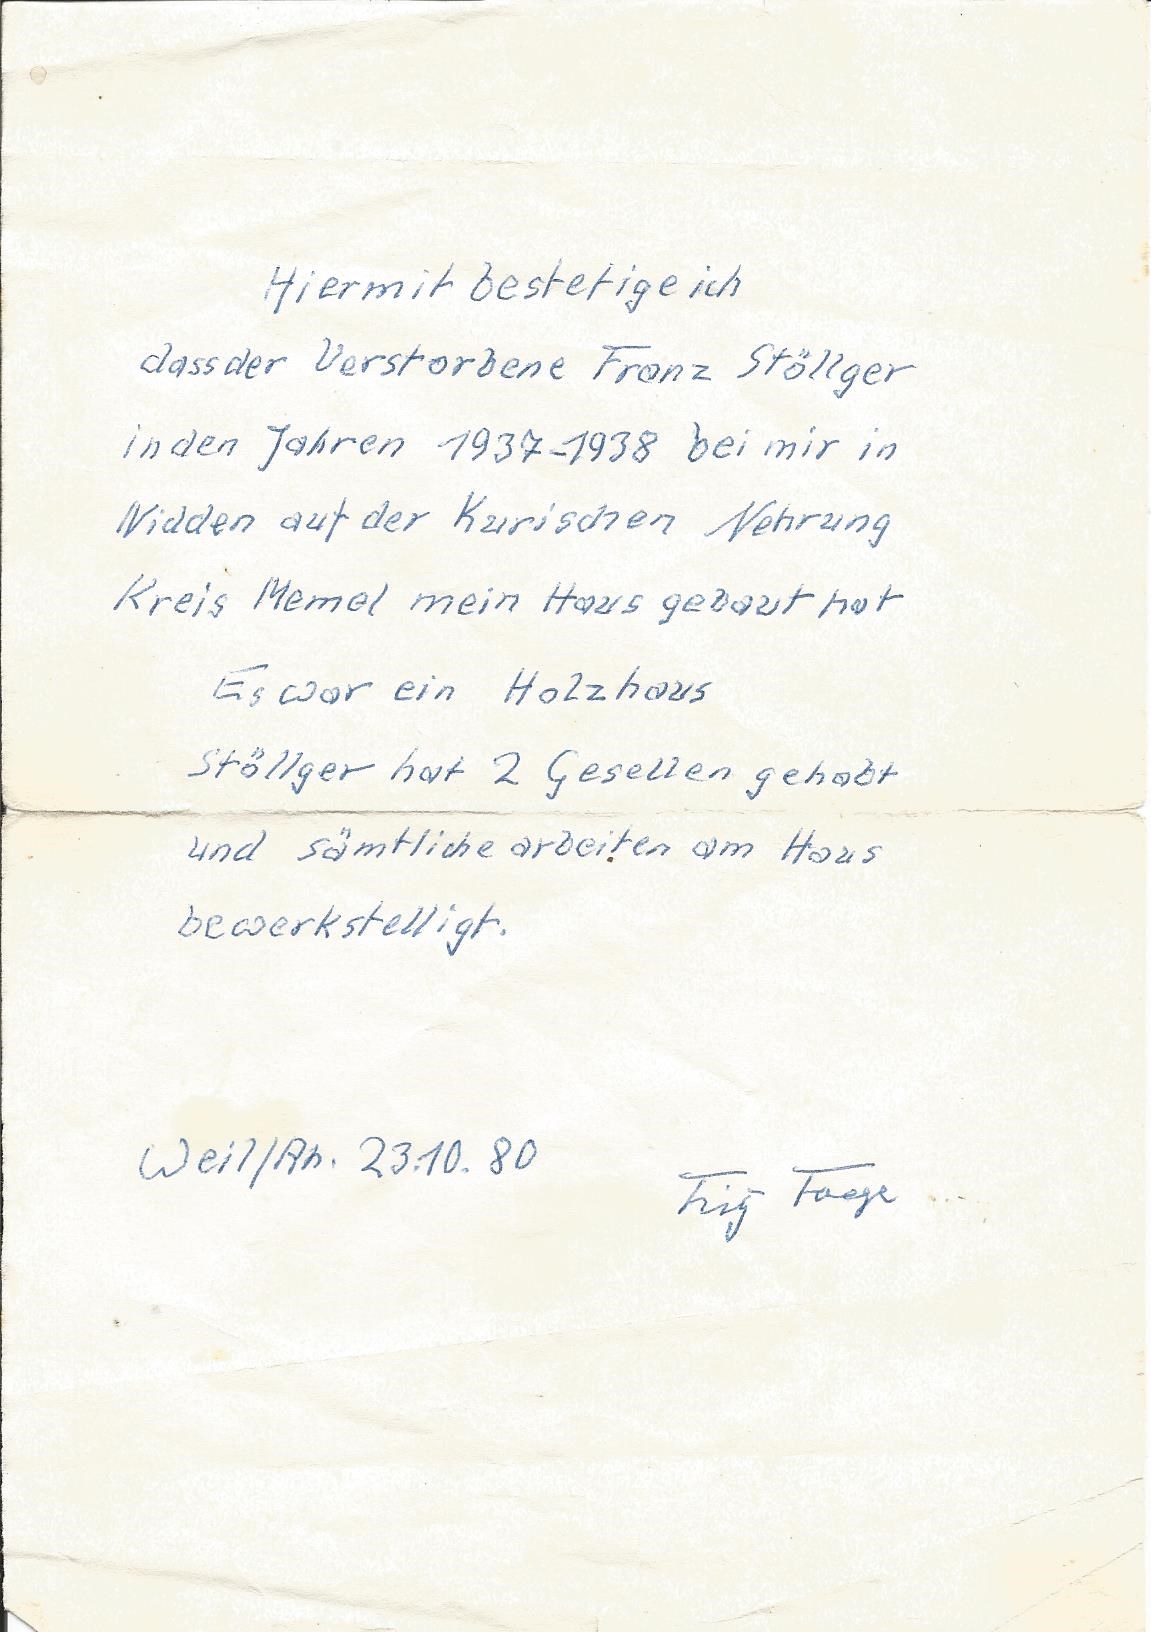 Hiermit bestetige ich
dass der Verstorbene Franz Stöllger
in den Jahren 1937-1938 bei mir in
Nidden auf der Kurischen Nehrung
Kreis Memel mein Haus gebaut hat
Es war ein Holzhaus
Stöllger hat 2 Gesellen gehabt
und sämtliche arbeiten am Haus
bewerkstelligt.
Weil/Rh. 23.10.80
Fritz